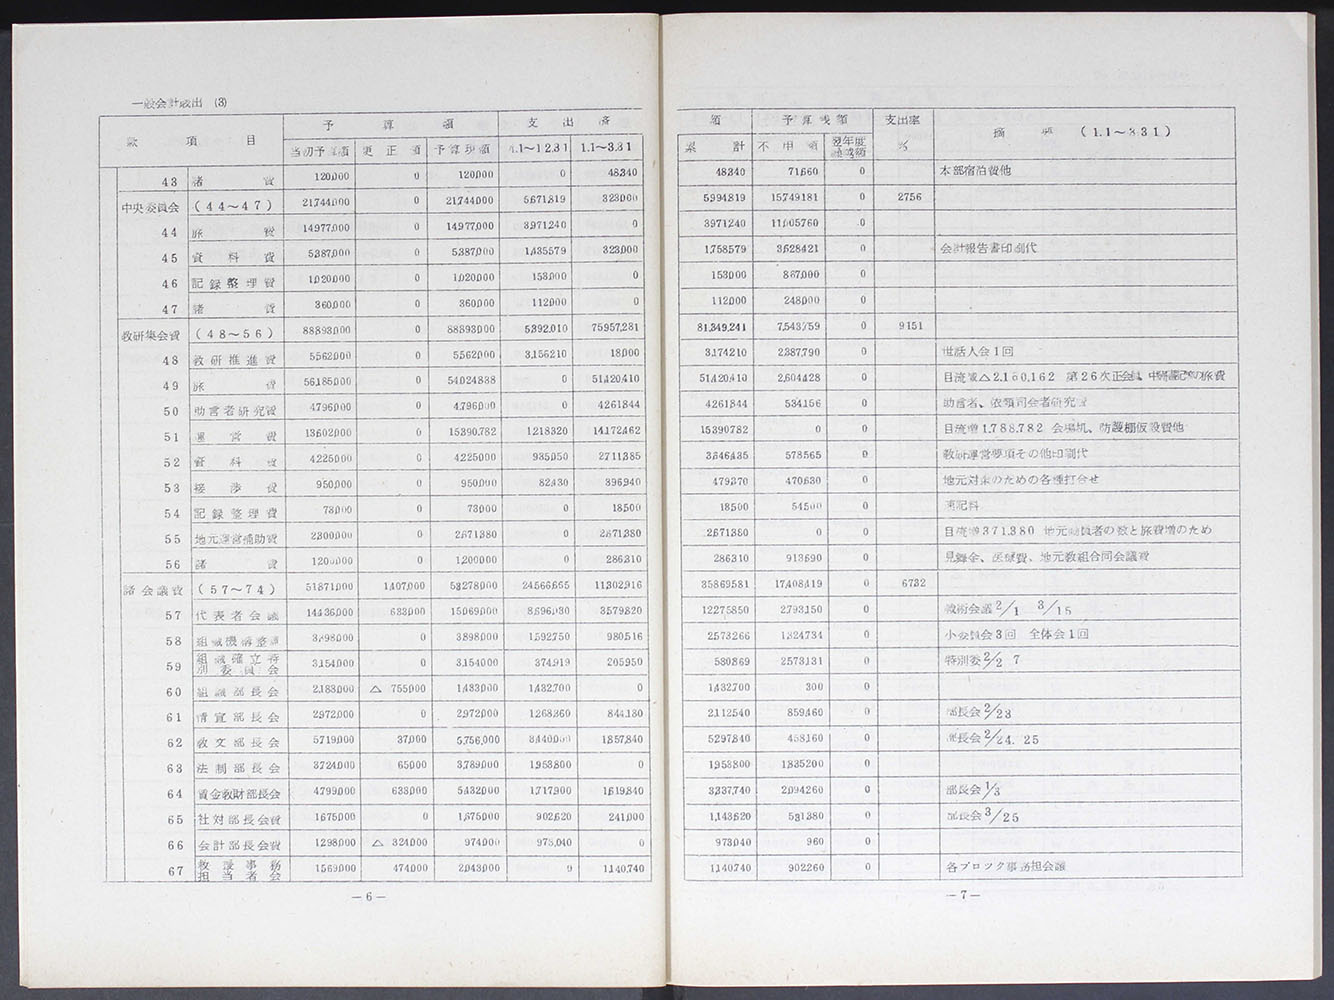 一般会計歳出 (3)
款 項 目 予算額 支出済
当初予算額 更正額 予算現額 4.1～12.31 1.1～3.31
43 諸費 120,000 0 120,000 0 48,340
中央委員会 (44～47) 21,744,000 0 21,744,000 5,671,819 323,000
44 旅費 14,977,000 0 14,977,000 3,971,240 0
45 資料費 5,387,000 0 5,387,000 1,435,579 323,000
46 記録整理費 1,020,000 0 1,020,000 153,000 0
47 諸費 360,000 0 360,000 112,000 0
教研集会費 (48～56) 88,893,000 0 88,893,000 5,392,010 75,957,231
48 教研推進費 5,562,000 0 5,562,000 3,156,210 18,000
49 旅費 56,185,000 0 54,024,838 0 51,420,410
50 助言者研究費 4,796,000 0 4,796,000 0 4,261,844
51 運営費 13,602,000 0 15,390,782 1,218,320 14,172,462
52 資料費 4,225,000 0 4,225,000 935,050 2,711,385
53 接渉費 950,000 0 950,000 82,430 396,940
54 記録整理費 73,000 0 73,000 0 18,500
55 地元運営補助費 2,300,000 0 2,671,380 0 2,671,380
56 諸費 1,200,000 0 1,200,000 0 286,310
諸会議費 (57～74) 51,871,000 1,407,000 53,278,000 24,566,665 11,302,916
57 代表者会議 14,436,000 633,000 15,069,000 8,696,030 3,579,820
58 組織機構整 3,898,000 0 3,898,000 1,592,750 980,516
59 組織確立特別委員会 3,154,000 0 3,154,000 374,919 205,950
60 組織部長会 2,183,000 △ 755,000 1,433,000 1,432,700 0
61 情宣部長会 2,972,000 0 2,972,000 1,268,360 844,180
62 教文部長会 5,719,000 37,000 5,756,000 3,440,000 1,857,840
63 法制部長会 3,724,000 65,000 3,789,000 1,953,800 0
64 賃金教財部長会 4,799,000 633,000 5,432,000 1,717,900 1,619,840
65 社対部長会費 1,675,000 0 1,675,000 902,620 241,000
66 会計部長会費 1,298,000 △ 324,000 974,000 973,040 0
67 教護事務担当者会 1,569,000 474,000 2,043,000 0 1,140,740
―6―
額 予算残額 支出率 摘要 (1.1～3.31)
累計 不用額 翌年度繰越額 %
48,340 71,660 0 本部宿泊費他
5,994,819 15,749,181 0 27.56
3,971,240 11,005,760 0
1,758,579 3,628,421 0 会計報告書印刷代
153,000 867,000 0
112,000 248,000 0
81,349,241 7,543,759 0 91.51
3,174,210 2,387,790 0 世話人会1回
51,420,410 2,604,428 0 目流減△2,160,162 第26次正会員、の旅費
4,261,844 534,156 0 助言者、依頼司会者研究費
15,390,782 0 0 目流増1,788,782 会場机、防護棚仮設費他
3,646,435 578,565 0 教研運営要項その他印刷代
479,370 470,630 0 地元対策のための各種打合せ
18,500 54,500 0 速記料
2,671,380 0 0 目流増371,380 地元動員者の数と旅費増のため
286,310 913,690 0 見舞金、医療費、地元教組合同会議費
35,869,581 17,408,419 0 67.32
12,275,850 2,793,150 0 戦術会議2/1 3/15
2,573,266 1,324,734 0 小委員会3回 全体会1回
580,869 2,573,131 0 特別委2/2 7
1,432,700 300 0
2,112,540 859,460 0 部長会2/23
5,297,840 458,160 0 部長会2/24.25
1,953,800 1,835,200 0
3,337,740 2,094,260 0 部長会1/3
1,143,620 531,380 0 部長会3/25
973,040 960 0
1,140,740 902,260 0 各ブロック事務担会議
―7―